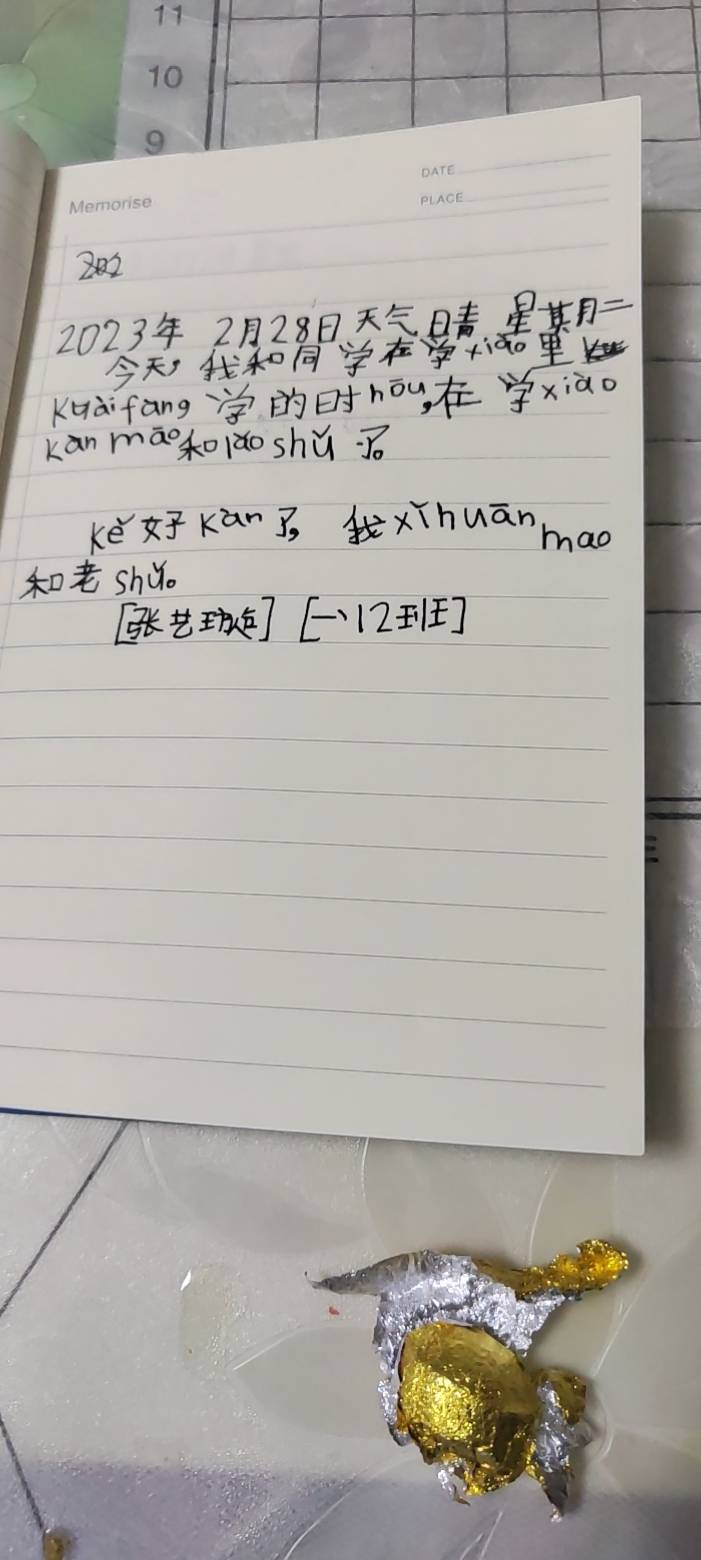 11
10
9
Memorise
DATE
PLACE
202
2023年 2月28日 天气晴 星期二
今天,我和同学在学xiào里
kuàifang学的时hōu,在学xiào
kàn māo和lǎo shǔ了。
kě好kàn了,我xǐhuān mao
和老shǔ。
[张艺] [一、12班]